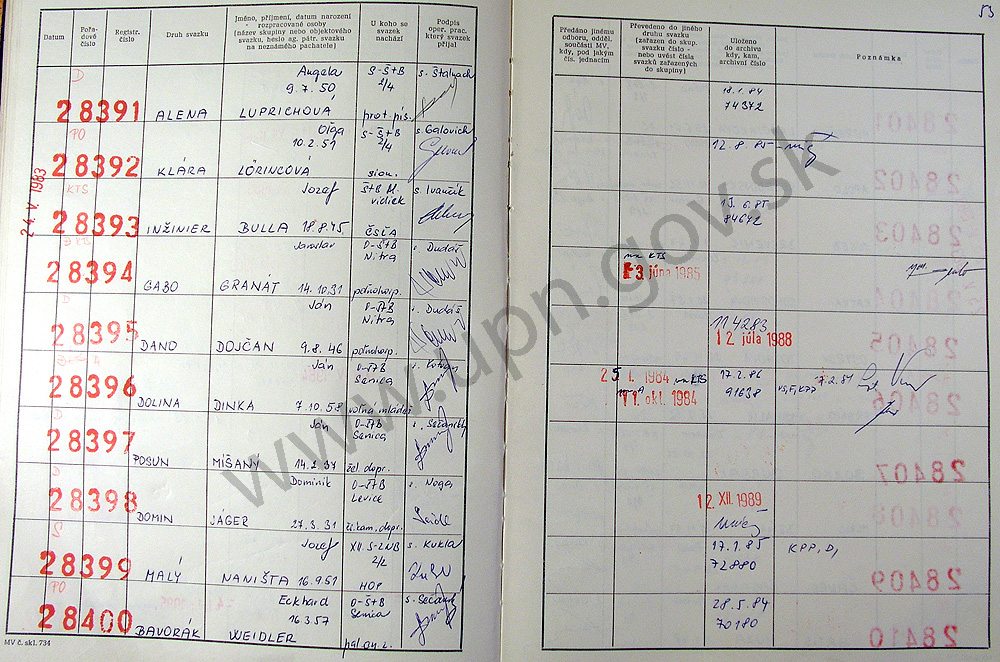 53
Datum
Pořadové číslo
Registr. číslo
Druh svazku
Jméno, příjmení, datum narození rozpracované osoby
(název skupiny nebo objektového
svazku, heslo ag. pátr. svazku
na neznámého pachatele)
U koho se svazek nachází
Podpis oper. prac. který svazek přijal
Předáno jinému odboru, odděl. součásti MV, kdy, pod jakým čís. jednacím
Převedeno do jiného druhu svazku (zařazen do skup. svazku číslo - nebo uvést čísla svazků zařazených do skupiny)
Uloženo do archívu kdy, kam, archivní číslo
Poznámka
24. V. 1983
D
Angela S-Š+B s. Štalmach
9.7.50 2/4
28391 ALENA LUPRICHOVÁ prot. pís.
18.1.84
74342
PO
Oľga S-Š+B s. Galovich
10.2.51 2/4
28392 KLÁRA LÖRINCOVÁ sion.
12.8.85
KTS
Jozef Š+B M. s. Ivančík
vidiek
28393 INŽINIER BULLA 18.8.45 ČSĽA
13.6.85
84642
D KTS
Jaroslav O-Š+B s. Dudáš
Nitra
28394 GABO GRANÁT 14.10.31 poľnohosp.
na KTS
3 júna 1985
D
Ján O-ŠTB s. Dudáš
Nitra
28395 DANO DOJČAN 9.8.46 poľnohosp.
114283
12 júla 1988
Ján O-ŠTB
Senica
28396 DOLINA DINKA 7.10.58 voľná mládež
25 I. 1984 na KTS
11. okt. 1984
17.2.86
91638
7.2.84
Ján O-ŠTB
Senica
28397 POSUN MÍŠANY 14.2.37 žel. dopr.
D
Dominik O-ŠTB s. Noga
Levice
28398 DOMIN JÁGER 27.3.31 žel. dopr.
12 XII. 1989
S
Jozef XII. S-ZNB s. Kukla
2/2
28399 MALÝ NANIŠTA 16.9.51 HOP
17.1.85 KPP, D,
72880
PO
Eckhard O-Š+B
16.3.57 Senica
28400 BAVORÁK WEIDLER
28.5.84
70180
MV č. skl. 734
www.upn.gov.sk